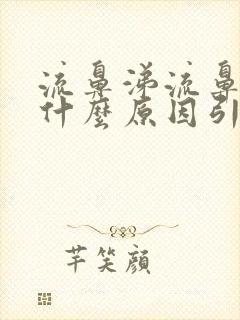 流鼻涕流鼻
什麼原因引
芊笑顏